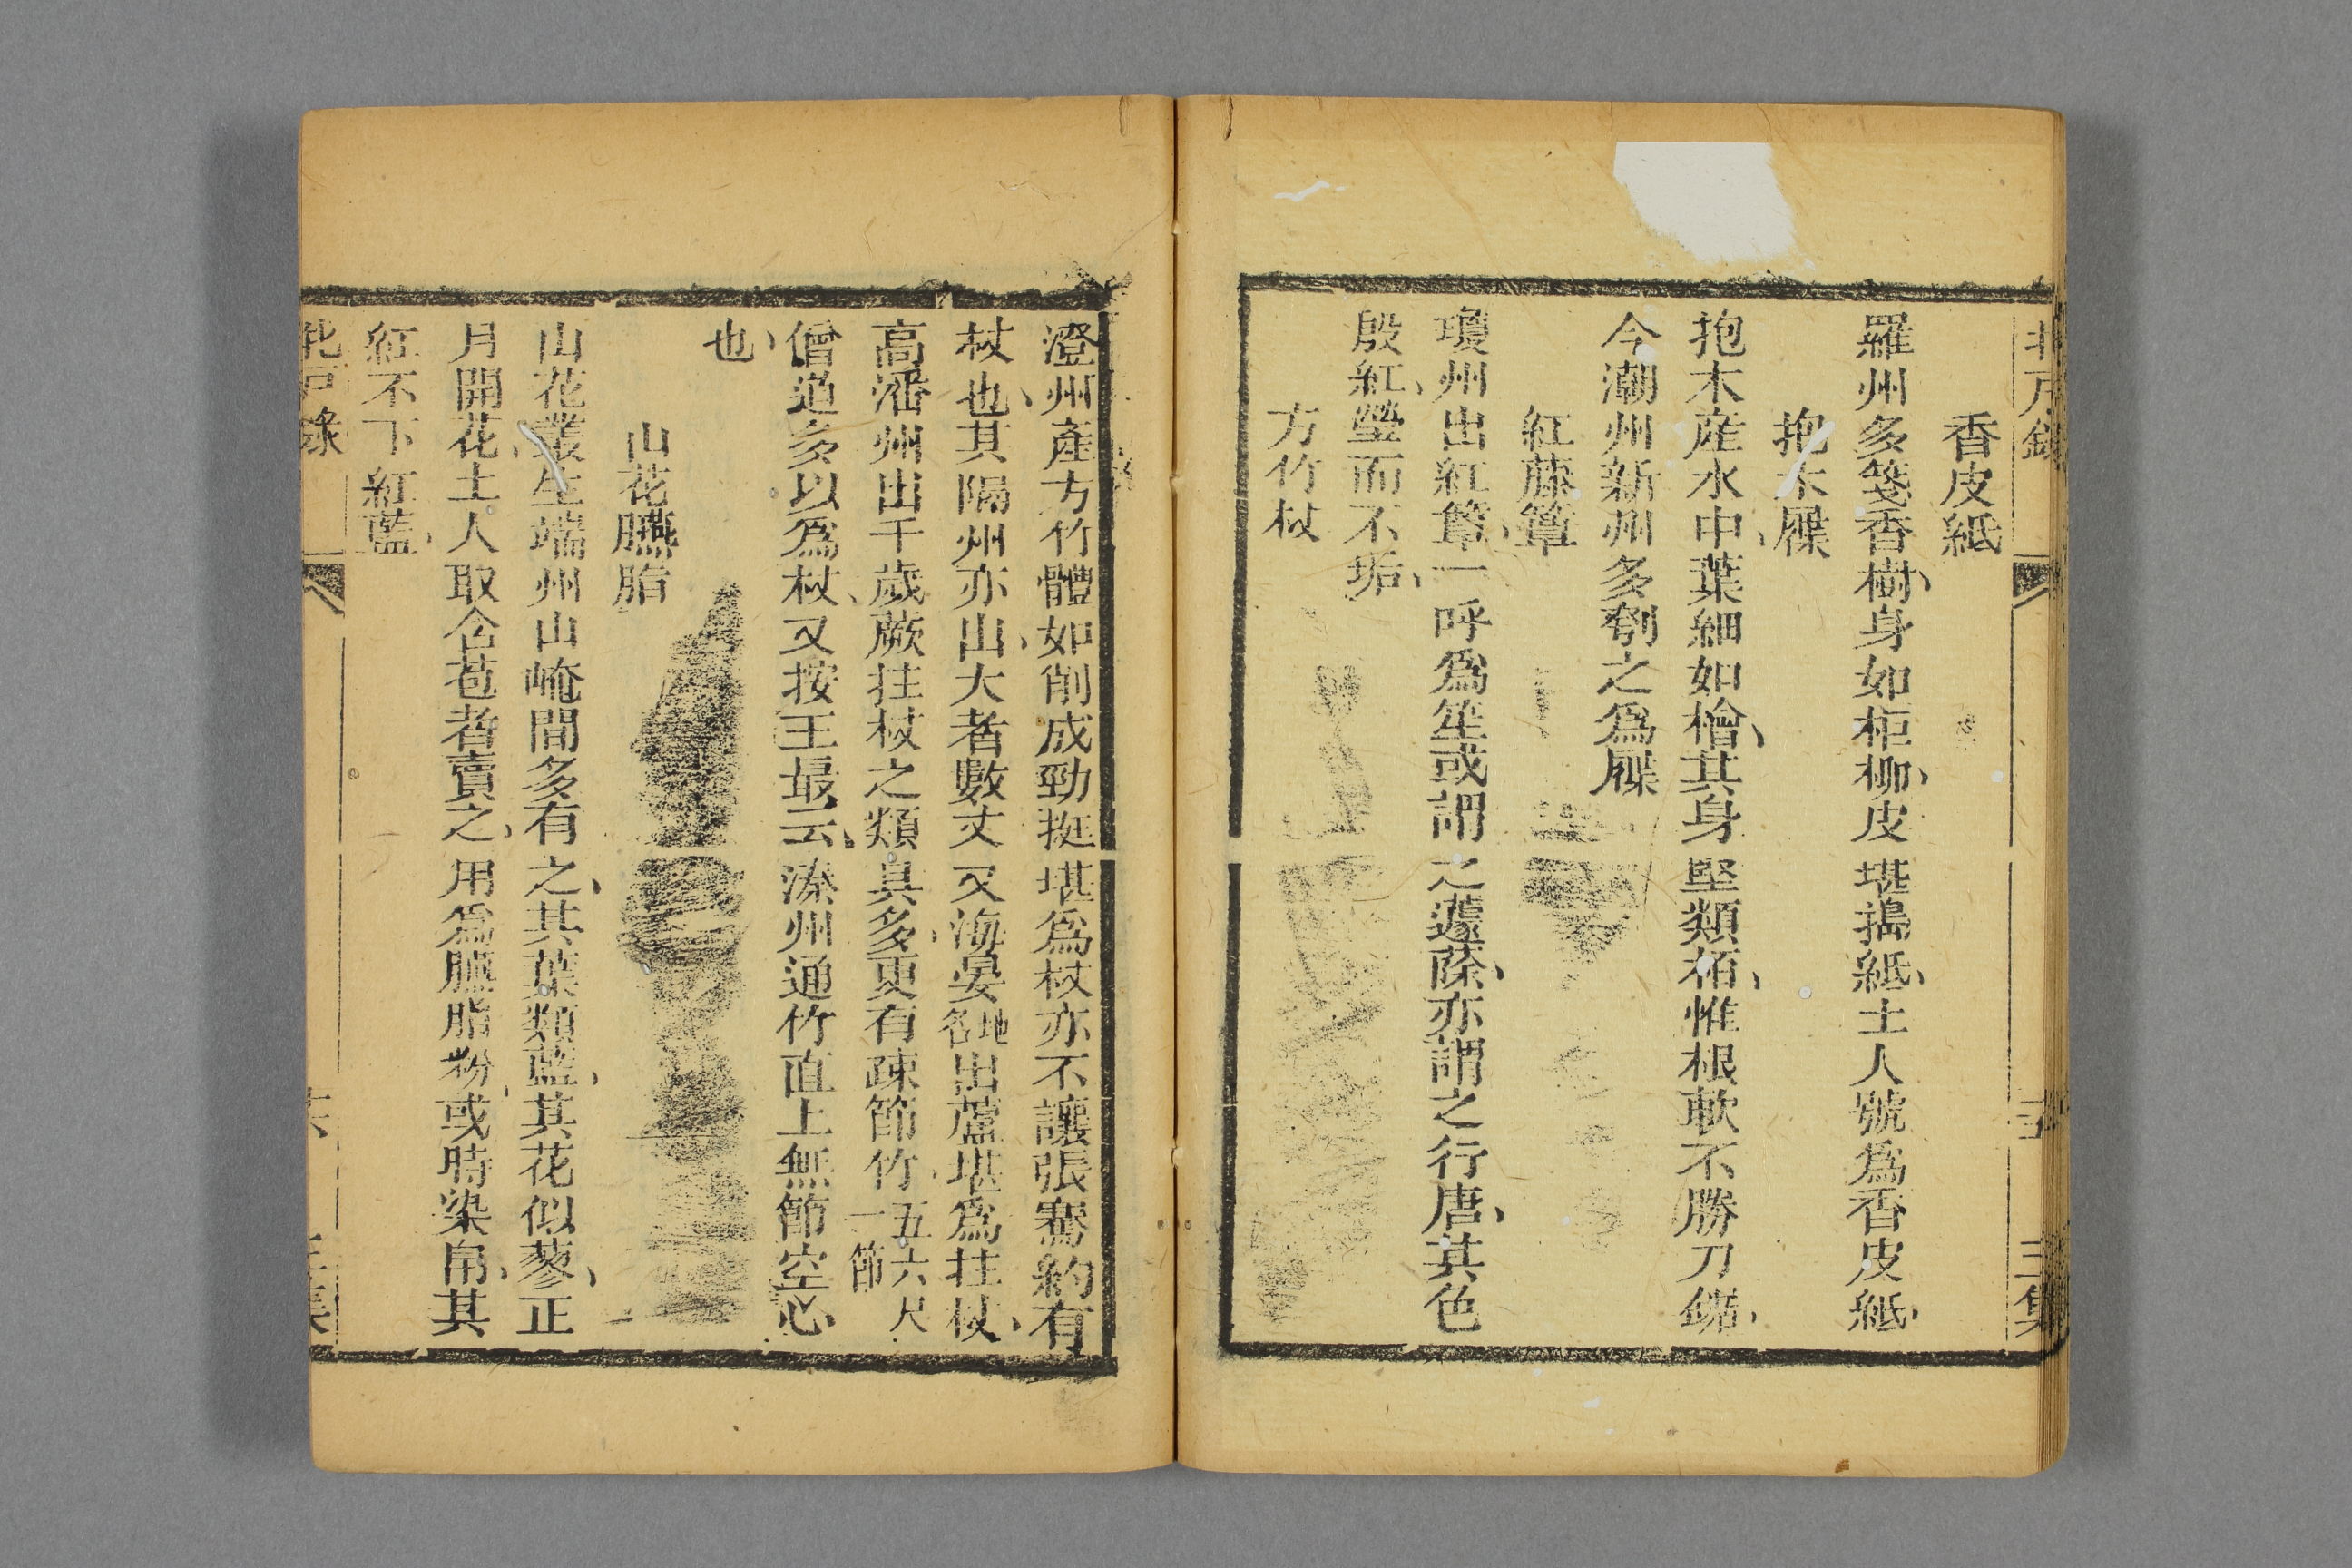 北戶錄
香皮紙
羅州多箋香樹、身如柜柳、皮堪搗紙、土人號爲香皮紙、
抱木屧
抱木産水中、葉細如檜、其身堅類栢、惟根軟不勝刀鋸、
今潮州新州多刳之爲屧
紅藤簟
瓊州出紅簟、一呼爲笙或謂之蘧蒢、亦謂之行唐、其色
殷紅、瑩而不垢、
方竹杖
澄州產方竹體如削成勁挺堪爲杖亦不讓張騫約有
杖也、其隔州亦出、大者數丈又海晏地名出蘆堪爲拄杖、
高潘州出千歲蕨拄杖之類具多、更有疎節竹、五六尺一節
僧道多以爲杖、又按王最云、溱州通竹直上無節空心、
也、
山花臙脂
山花叢生端州山崦間多有之、其葉類藍、其花似蓼、正
月開花、土人取含苞者賣之、用爲臙脂粉、或時染帛、其
紅不下紅藍、
北戶錄